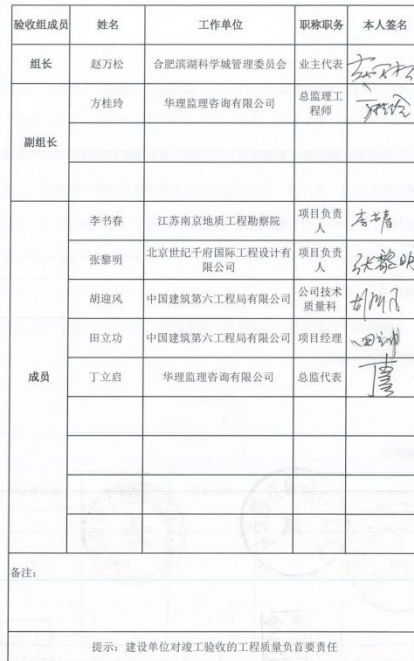 验收组成员 姓名 工作单位 职称职务 本人签名
组长 赵万松 合肥滨湖科学城管理委员会 业主代表 赵万松
副组长 方桂玲 华理监理咨询有限公司 总监理工程师 方桂玲
成员 李书春 江苏南京地质工程勘察院 项目负责人 李书春
张黎明 北京世纪千府国际工程设计有限公司 项目负责人 张黎明
胡迎风 中国建筑第六工程局有限公司 公司技术质量科 胡迎风
田立功 中国建筑第六工程局有限公司 项目经理 田立功
丁立启 华理监理咨询有限公司 总监代表
备注：
提示：建设单位对竣工验收的工程质量负首要责任